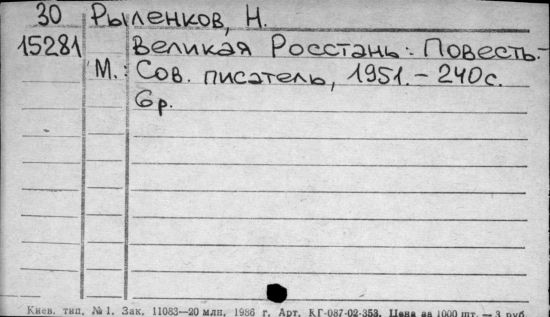 30 Рыленков, Н.
15281 Великая Росстань: Повесть.-
М.: Сов. писатель, 1951. – 240с.
6р.
Киев. тип. № 1. Зак. 11083—20 млн, 1986 г. Арт. КГ-087-02-353. Цена за 1000 шт. — 3 руб